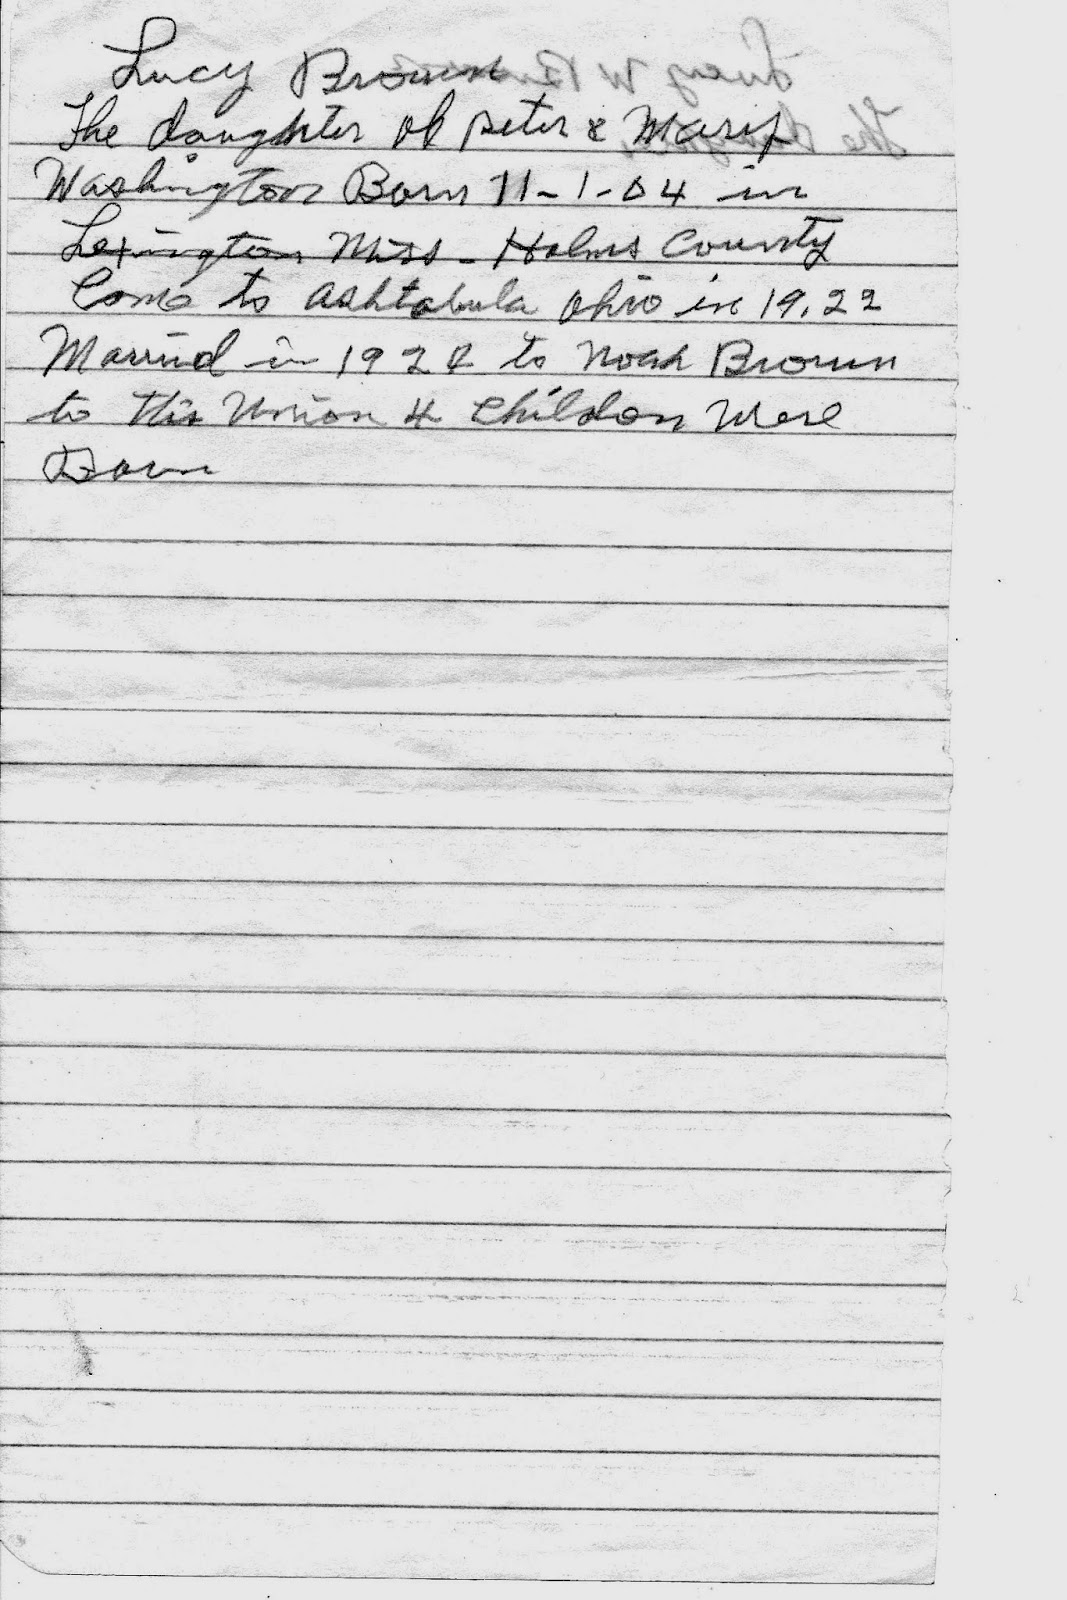 Lucy Brown
The daughter of Peter & Mary
Washington Born 11-1-04 in
Lexington Miss - Holms County
Come to Ashtabula Ohio in 19.22
Married in to Noah Brown
to this Union 4 Children Were
Born
Lucy W Brown
The daughter